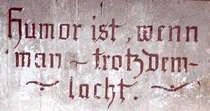 Humor ist, wenn
man ~ trotzdem-
lacht.